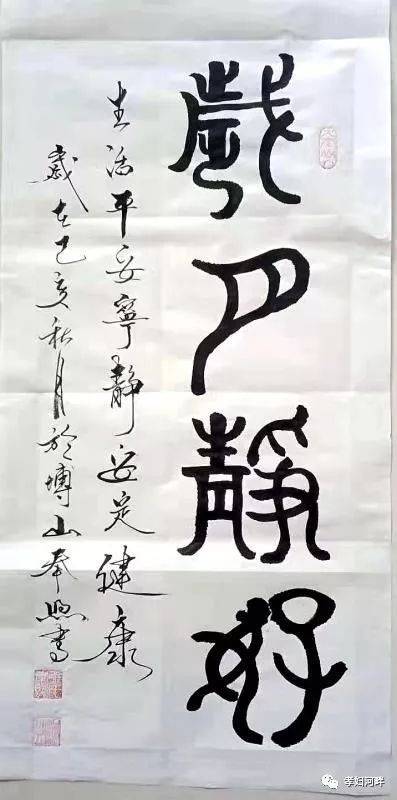 歲月靜好
生活平妥寧靜安定健康
歲在己亥秋月於博山奉書
孝妇河畔